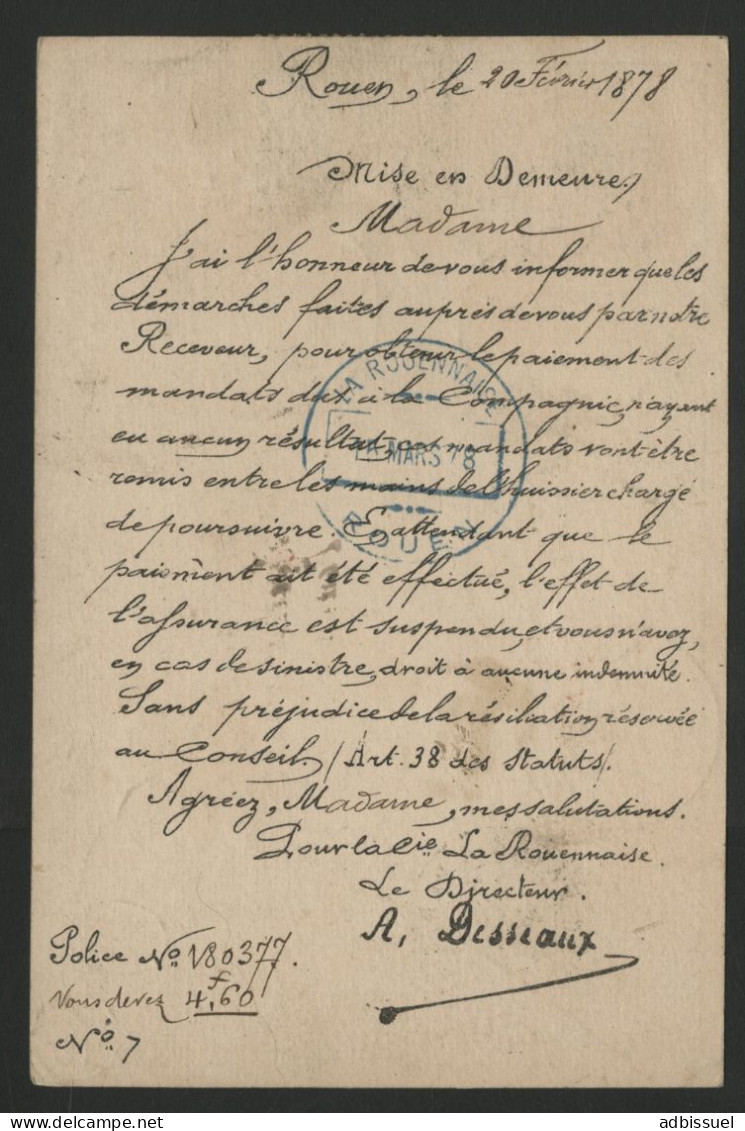 Rouen, le 20 Février 1878
Mise en Demeure,
Madame
J'ai l'honneur de vous informer que les
démarches faites auprès de vous par notre
Receveur, pour obtenir le paiement des
mandats dux à la Compagnie, n'ayant
eu aucun résultat, ces mandats vont être
remis entre les mains de l'huissier chargé
de poursuivre. En attendant que le
paiement ait été effectué, l'effet de
l'assurance est suspendu, et vous n'avez,
en cas de sinistre, droit à aucune indemnité.
Sans préjudice de la résiliation réservée
au Conseil. (Art. 38 des Statuts).
Agréez, Madame, mes salutations.
Pour la Cie La Rouennaise.
Le Directeur.
A. Desseaux
Police No. 180377.
Vous devez 4f,60
No. 7
LA ROUENNAISE
MARS 78
ROUEN
adbissuel / delcampe.net